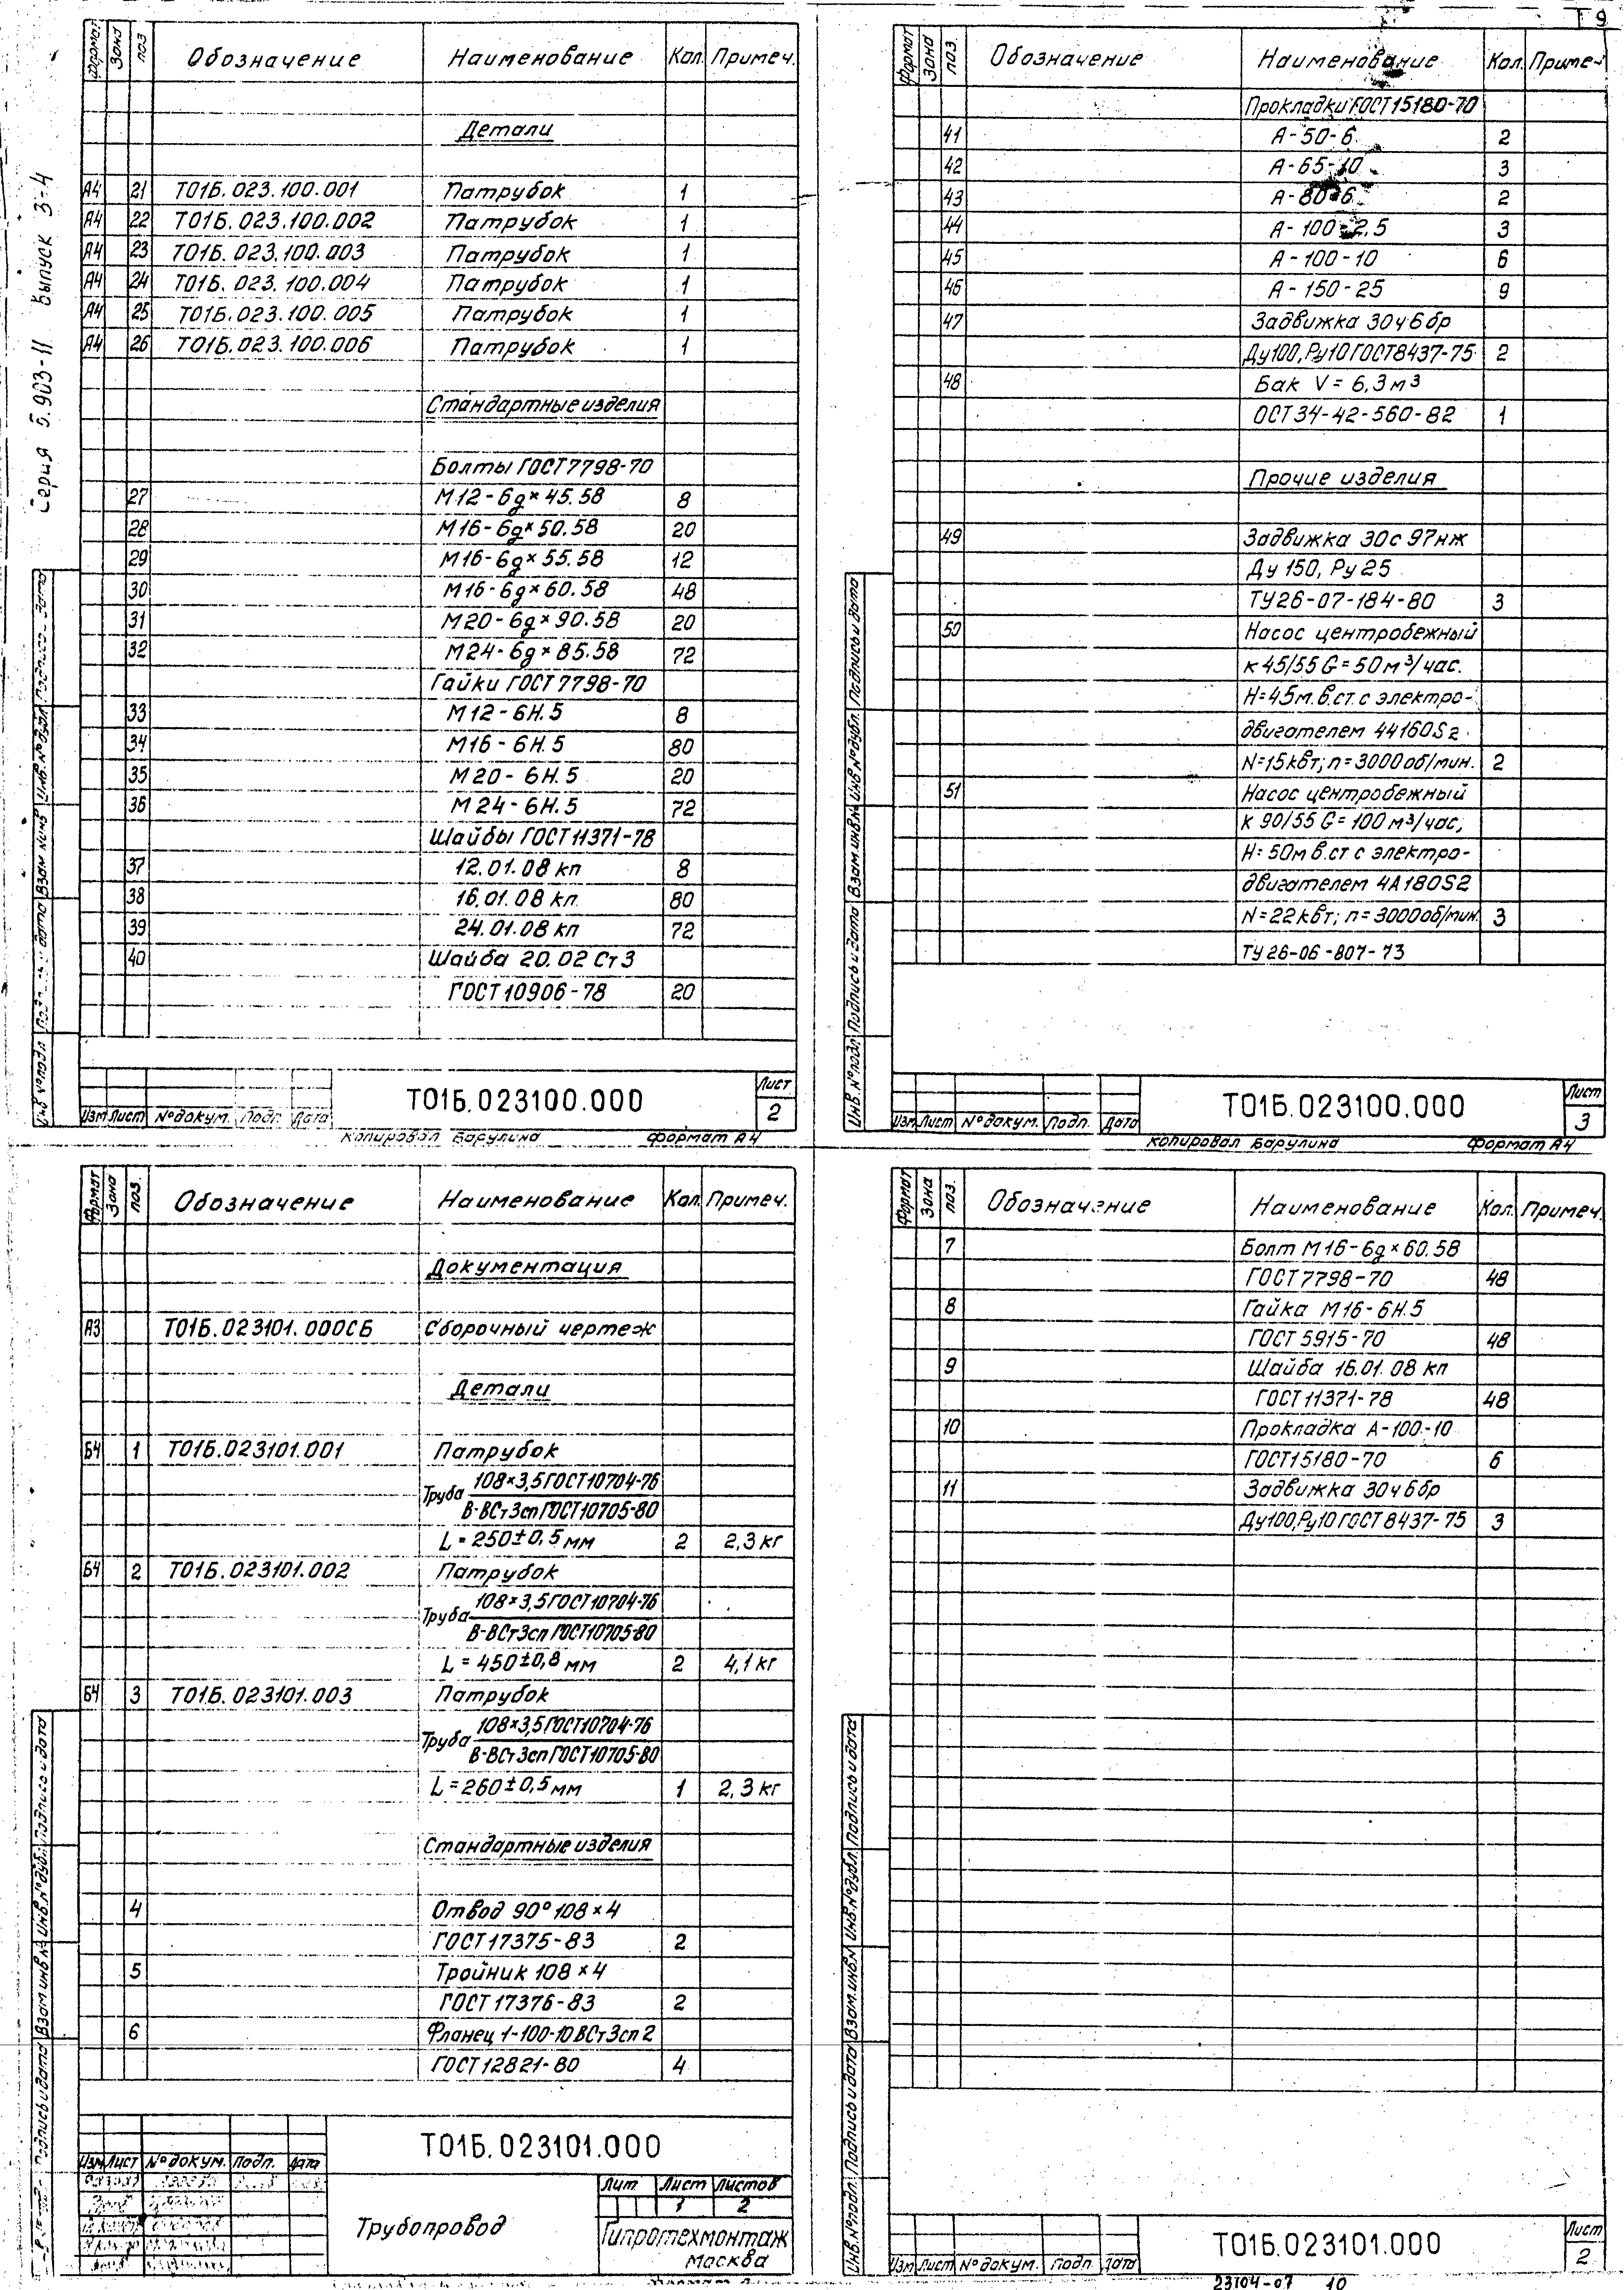 9
Серия 5.903-11 Выпуск 3-4
Формат Зона поз Обозначение Наименование Кол. Примеч.
Детали
А4 21 Т01Б.023.100.001 Патрубок 1
А4 22 Т01Б.023.100.002 Патрубок 1
А4 23 Т01Б.023.100.003 Патрубок 1
А4 24 Т01Б.023.100.004 Патрубок 1
А4 25 Т01Б.023.100.005 Патрубок 1
А4 26 Т01Б.023.100.006 Патрубок 1
Стандартные изделия
Болты ГОСТ 7798-70
27 М12-6g×45.58 8
28 М16-6g×50.58 20
29 М16-6g×55.58 12
30 М16-6g×60.58 48
31 М20-6g×90.58 20
32 М24-6g×85.58 72
Гайки ГОСТ 7798-70
33 М12-6Н.5 8
34 М16-6Н.5 80
35 М20-6Н.5 20
36 М24-6Н.5 72
Шайбы ГОСТ 11371-78
37 12.01.08 кп 8
38 16.01.08 кп 80
39 24.01.08 кп 72
40 Шайба 20.02 Ст3
ГОСТ 10906-78 20
Изм Лист № докум. Подп. Дата
Т01Б.023100.000
Лист
2
Копировал Барулина Формат А4
Формат Зона поз Обозначение Наименование Кол. Примеч
Прокладки ГОСТ 15180-70
41 А-50-6 2
42 А-65-10 3
43 А-80-6 2
44 А-100-2,5 3
45 А-100-10 6
46 А-150-25 9
47 Задвижка 30ч6бр
Ду100, Ру10 ГОСТ 8437-75 2
48 Бак V = 6,3 м³
ОСТ 34-42-560-82 1
Прочие изделия
49 Задвижка 30с 97нж
Ду 150, Ру 25
ТУ 26-07-184-80 3
50 Насос центробежный
К 45/55 G = 50 м³/час.
Н=45м.в.ст с электро-
двигателем 44160S2
N=15кВт; п=3000об/мин. 2
51 Насос центробежный
К 90/55 G = 100 м³/час,
Н=50м в.ст с электро-
двигателем 4А180S2
N=22кВт; п=3000об/мин. 3
ТУ 26-06-807-73
Инв.№подл. Подпись и дата Взам.инв.№ Инв.№дубл. Подпись и дата
Изм Лист № докум. Подп. Дата
Т01Б.023100.000
Лист
3
Копировал Барулина Формат А4
Формат Зона поз. Обозначение Наименование Кол. Примеч.
Документация
А3 Т01Б.023101.000СБ Сборочный чертеж
Детали
Б4 1 Т01Б.023101.001 Патрубок
Труба 108×3,5 ГОСТ 10704-76
В-ВСт3сп ГОСТ 10705-80
L = 250±0,5 мм 2 2,3 кг
Б4 2 Т01Б.023101.002 Патрубок
Труба 108×3,5 ГОСТ 10704-76
В-ВСт3сп ГОСТ 10705-80
L = 450±0,8 мм 2 4,1 кг
Б4 3 Т01Б.023101.003 Патрубок
Труба 108×3,5 ГОСТ 10704-76
В-ВСт3сп ГОСТ 10705-80
L = 260±0,5 мм 1 2,3 кг
Стандартные изделия
4 Отвод 90° 108×4
ГОСТ 17375-83 2
5 Тройник 108×4
ГОСТ 17376-83 2
6 Фланец 1-100-10 ВСт3сп2
ГОСТ 12821-80 4
Изм Лист № докум. Подп. Дата
Т01Б.023101.000
Трубопровод
Лит Лист Листов
1 2
Гипротехмонтаж
Москва
Формат Зона поз. Обозначение Наименование Кол. Примеч.
7 Болт М16-6g×60.58
ГОСТ 7798-70 48
8 Гайка М16-6Н.5
ГОСТ 5915-70 48
9 Шайба 16.01.08 кп
ГОСТ 11371-78 48
10 Прокладка А-100-10
ГОСТ 15180-70 6
11 Задвижка 30ч6бр
Ду100, Ру10 ГОСТ 8437-75 3
Инв.№подл. Подпись и дата Взам.инв.№ Инв.№дубл. Подпись и дата
Изм Лист № докум. Подп. Дата
Т01Б.023101.000
Лист
2
23104-07 10